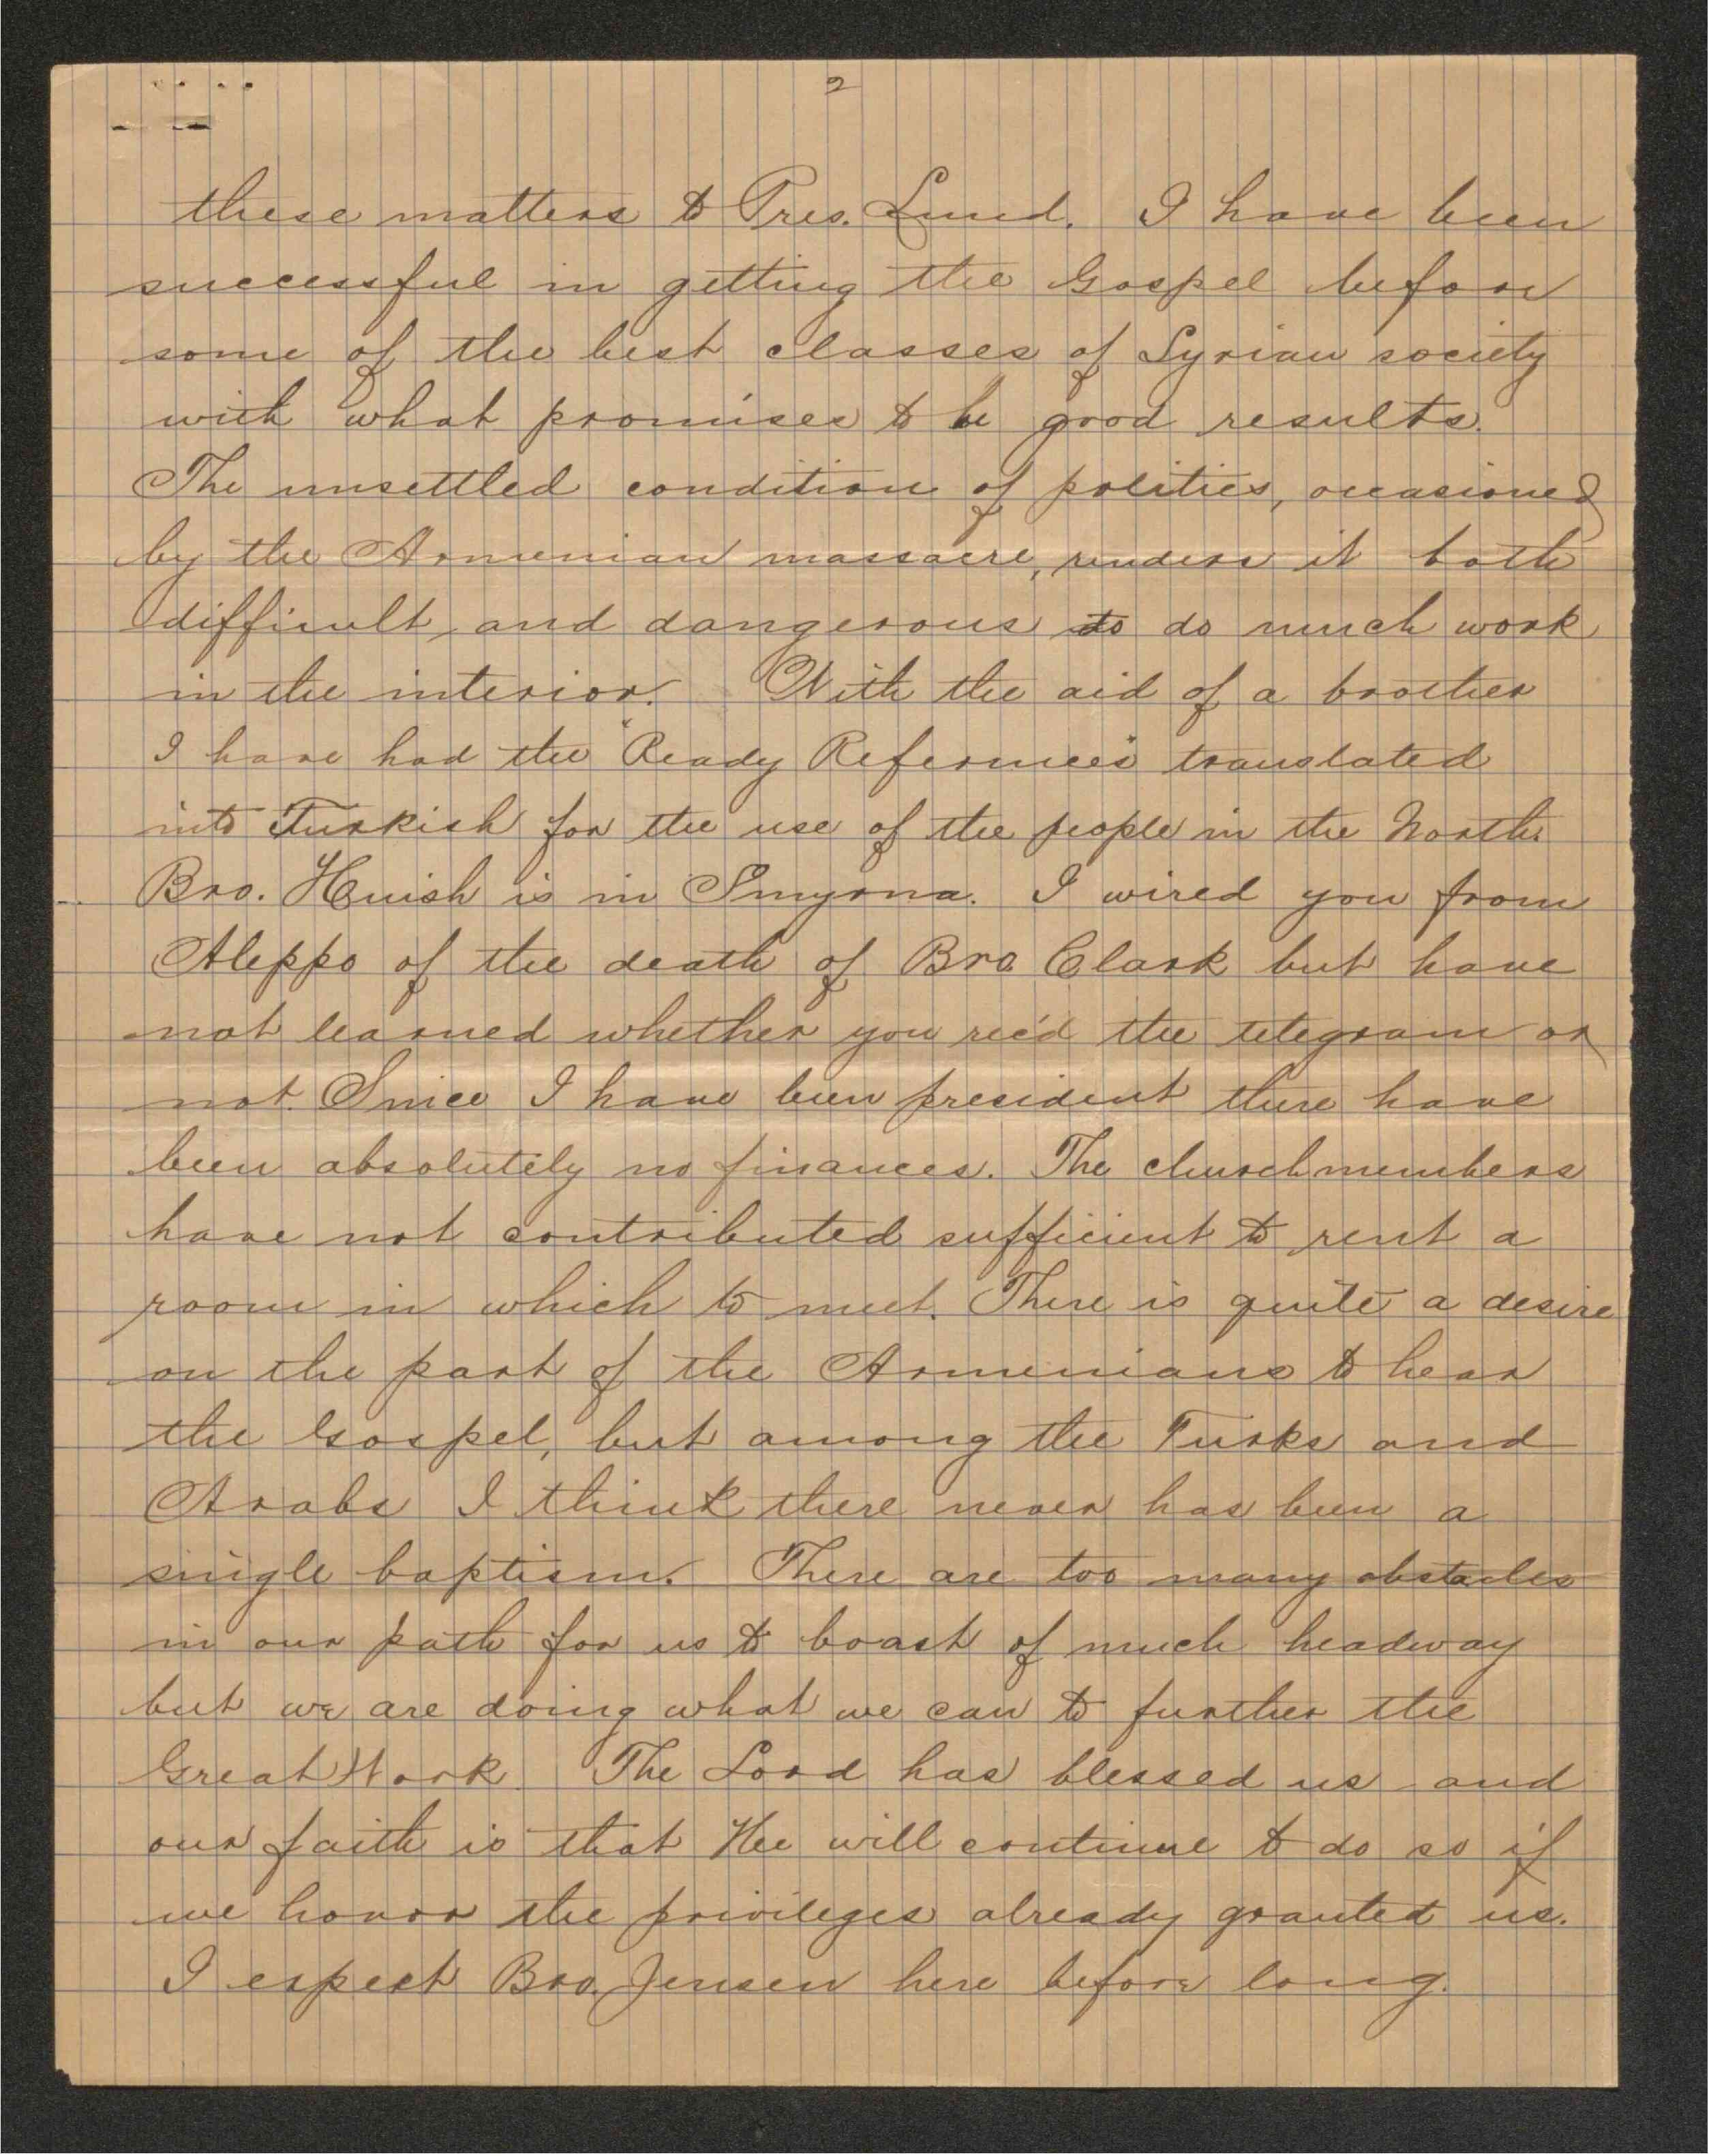 2
these matters to Pres. Lund. I have been
successful in getting the Gospel before
some of the best classes of Syrian society
with what promises to be good results.
The unsettled condition of politics, occasioned
by the Armenian massacre, renders it both
difficult and dangerous to do much work
in the interior. With the aid of a brother
I have had the "Ready References" translated
into Turkish for the use of the people in the North.
Bro. Huish is in Smyrna. I wired you from
Aleppo of the death of Bro. Clark but have
not learned whether you rec'd the telegram or
not. Since I have been president there have
been absolutely no finances. The church members
have not contributed sufficient to rent a
room in which to meet. There is quite a desire
on the part of the Armenians to hear
the Gospel, but among the Turks and
Arabs I think there never has been a
single baptism. There are too many obstacles
in our path for us to boast of much headway
but we are doing what we can to further the
Great Work. The Lord has blessed us and
our faith is that He will continue to do so if
we honor the privileges already granted us.
I expect Bro. Jensen here before long.